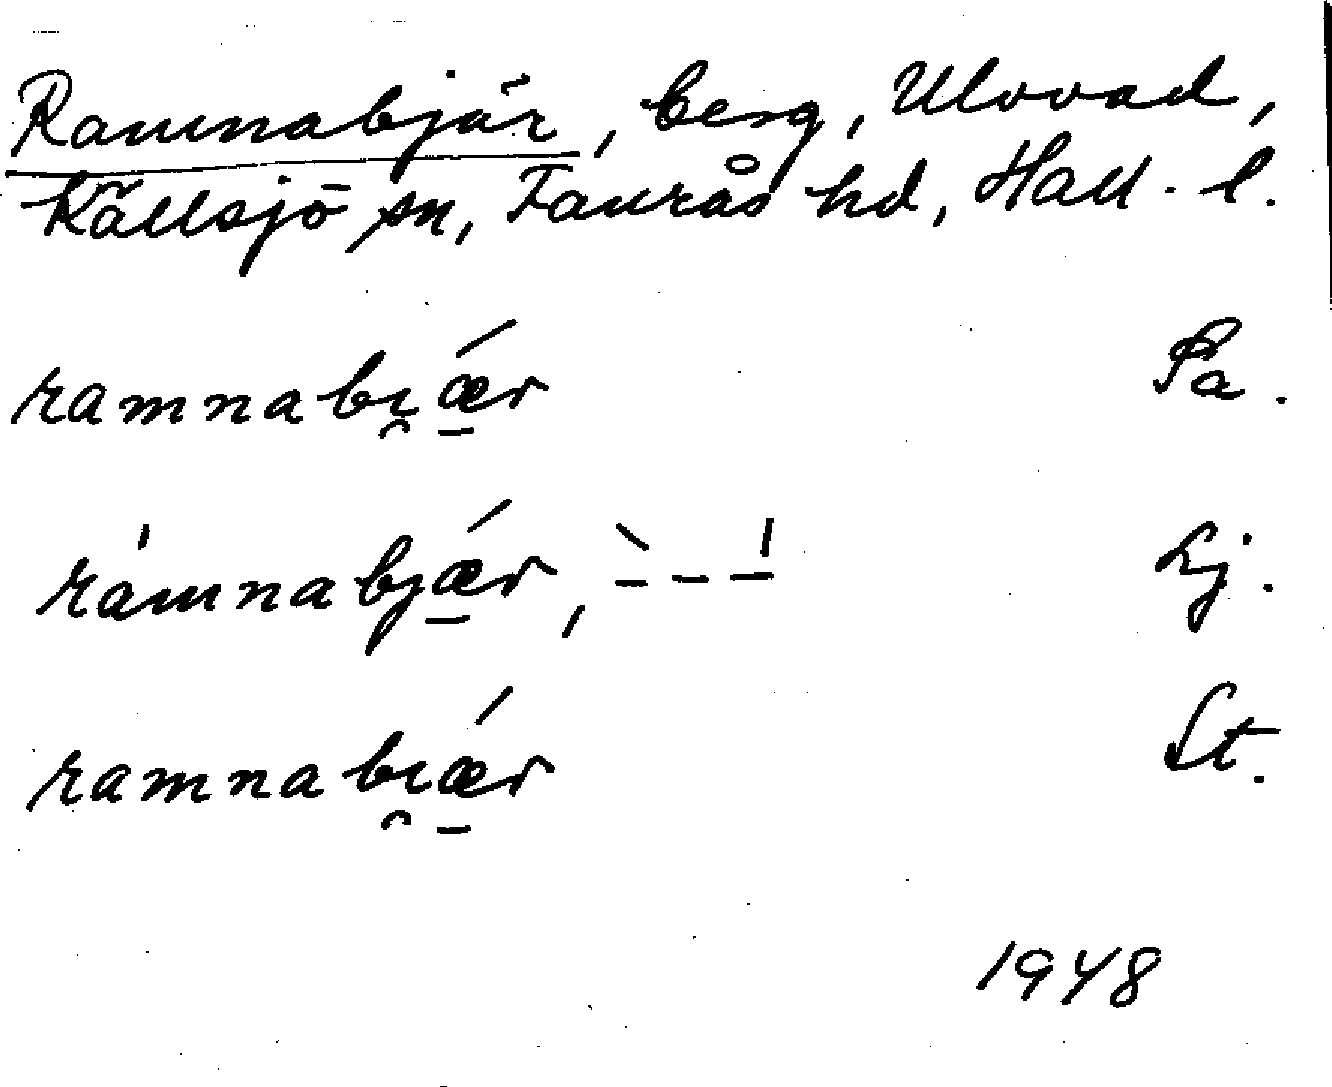 Ramnabjär, berg, Ulvvad,
Källsjö sn, Faurås hd, Hall. l.
ramnabı̯ǽ̱r Pa.
rámnabjǽ̱r, ̖ – – – Lj.
ramnabı̯ǽ̱r St.
1948